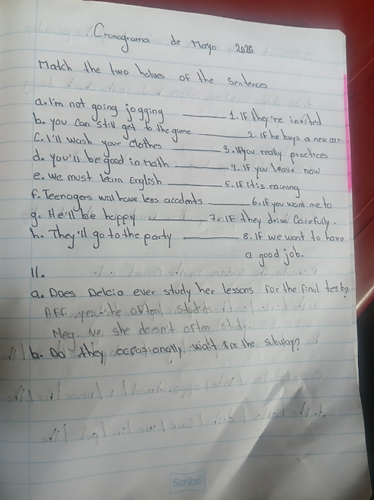 Cronograma de Mayo 2026
Match the two halves of the sentences
a. I'm not going jogging ______ 1. IF they're invited
b. you can still get to the game ______ 2. IF he buys a new car.
c. I'll wash your clothes ______ 3. IF you really practices
d. you'll be good in math ______ 4. IF you leave now
e. We must learn English ______ 5. IF it is raining
f. Teenagers will have less accidents ______ 6. IF you want me to
g. He'll be happy ______ 7. IF they drive carefully.
h. They'll go to the party ______ 8. IF we want to have
a good job.
II.
a. Does Delcia ever study her lessons for the final test?
AFF yes she often
Neg. No, she doesn't often
b. Do they occasionally wait for the subway?
Scribe